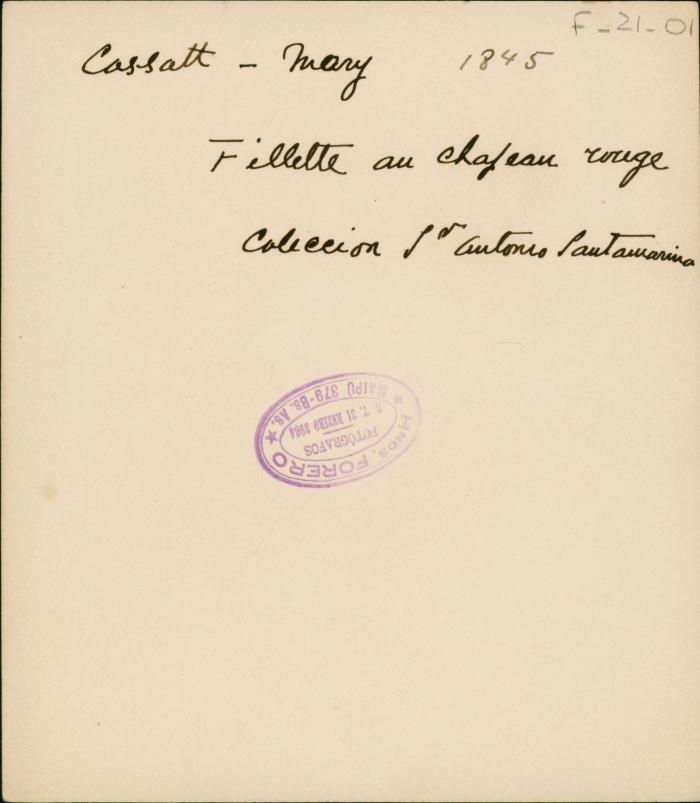 F-21-01
Cassatt - Mary 1845
Fillette au chapeau rouge
Coleccion Sr Antonio Santamarina
★ HNOS. FORERO ★
FOTÓGRAFOS
U. T. 31 RETIRO 3964
MAIPÚ 379-Bs. As.